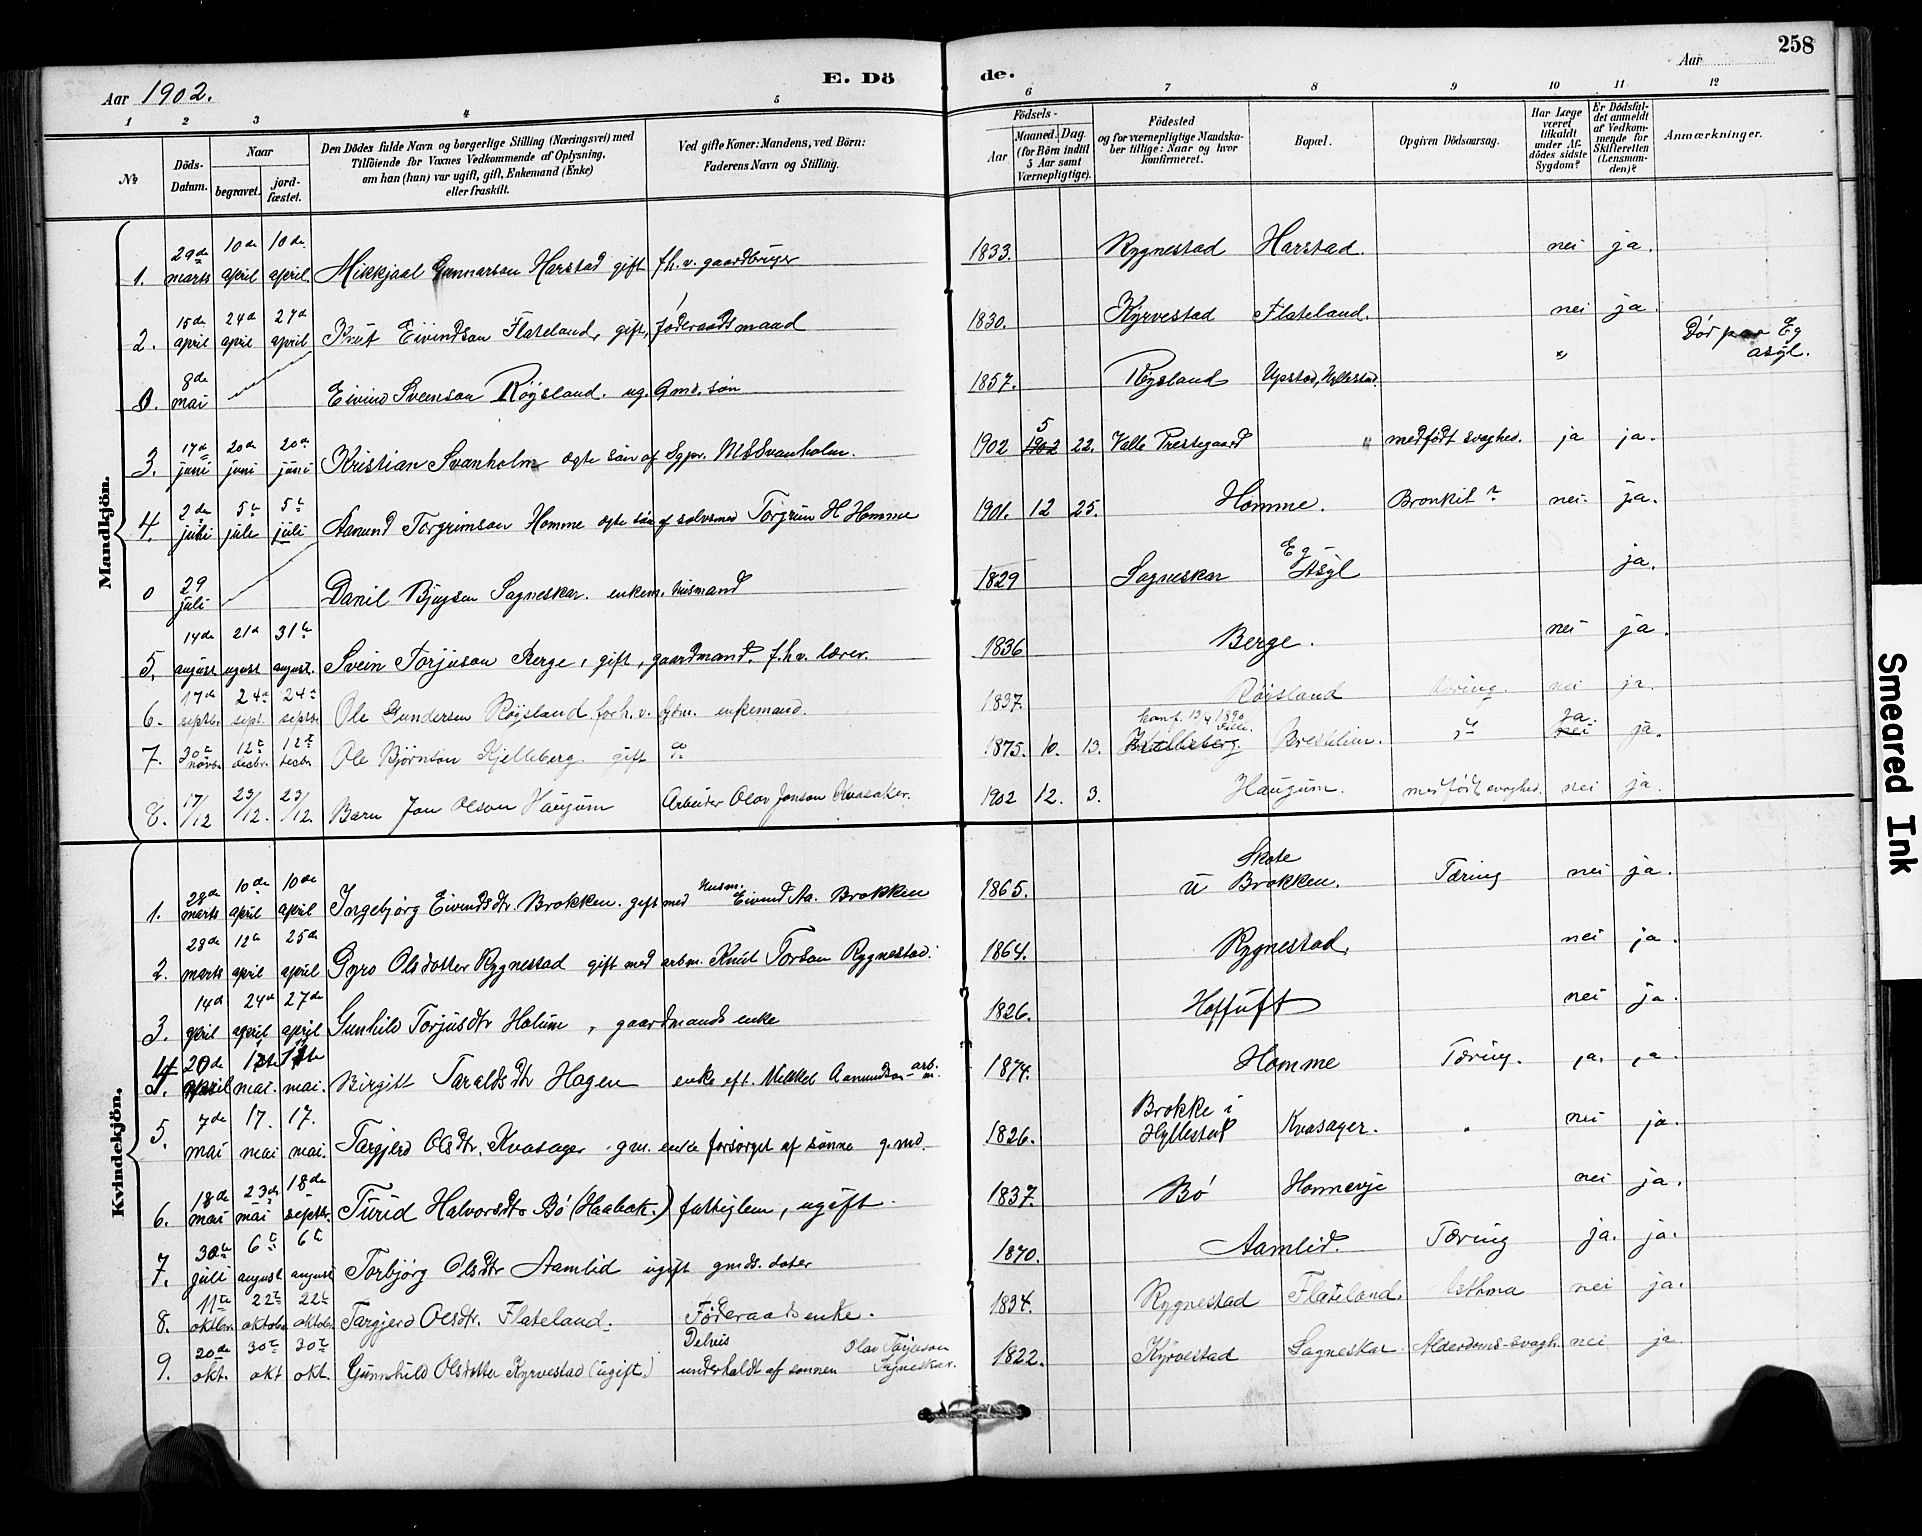 258
Aar 1902.
E. Dö
de.
Aar
1 2 3 4 5 6 7 8 9 10 11 12
No
Döds-Datum.
Naar
begravet.
jord-fæstet.
Den Dödes fulde Navn og borgerlige Stilling (Næringsvei) med
Tilföiende for Voxnes Vedkommende af Oplysning,
om han (hun) var ugift, gift, Enkemand (Enke)
eller fraskilt.
Ved gifte Koner: Mandens, ved Börn:
Faderens Navn og Stilling.
Födsels-
Aar
Maaned. Dag.
(for Börn indtil
5 Aar samt
Værnepligtige).
Födested
og for værnepligtige Mandska-
ber tillige: Naar og hvor
konfirmeret.
Bopæl.
Opgiven Dödsaarsag.
Har Læge
været
tilkaldt
under Af-
dödes sidste
Sygdom?
Er Dödsfal-
det anmeldt
af Vedkom-
mende for
Skifteretten
(Lensman-
den)?
Anmærkninger.
Mandkjön.
1. 29de marts 10de april 10de april. Mikkjaal Gunnarson Harstad gift f.h.v. gaardbruger 1833. Rygnestad Harstad. nei ja.
2. 15de april 24d april 27d april Knut Eivindson Flateland, gift, föderaadsmand 1830. Kyrvestad Flateland. nei ja.
0. 8de mai Eivind Sveinson Röysland. ug. Gmd. sön 1857. Röysland Upstad, Hyllestad. " Död paa Eg asyl.
3. 17d juni 20de juni 20de juni Kristian Svanholm ægte sön af Sgpr. M S Svanholm. 1902 5 1902 22. Valle Prestegaard " medfödt svaghed. ja ja.
4. 2de juli 5te juli 5te juli Aanund Torgrimson Homme ægte sön af sølvsmed Torgrim H Homme 1901. 12 25. Homme. Bronkit nei. ja.
0 29 juli Danil Bjugsen Sagneskar. enkem. husmand 1829 Sagneskar Eg-Asyl ja.
5. 14de august 21d august 31te august. Svein Torjuson Berge, gift, gaardmand. f.h.v. lærer. 1836 Berge. nei ja.
6. 17de septbr. 24de sept. 24de septbr. Ole Gundersen Röysland. forh. v. Gdm. enkemand. 1837. Röisland Tæring. nei ja.
7. 30te novbr. 12te decbr. 12te decbr. Ole Björnson Kjelleberg. gift do 1875. 10. 13. konf. 13/4 1890 Valle. Kjelleberg. nei ja ja.
8. 17/12 23/12. 23/12. Barn Jon Olson Haugum Arbeider Olav Jonson Kvasaker. 1902 12. 3. Haugum. medfödt svaghed. nei ja.
Kvindekjön.
1. 28de marts 10de april 10de april Ingebjørg Eivindsdtr. Brokken. gift med Husm. Eivind Aa. Brokken 1865. Skote u Brokken. Tæring nei ja.
2. 28de marts 12te april 25de april Gyro Olsdotter Rygnestad gift med arbm. Knut Torson Rygnestad. 1864. Rygnestad. nei ja.
3. 14d april 24de april 27de april Gunhild Torjusdtr Holum, gaardmands enke 1826. Hoffuft nei ja.
4. 20de april mai. mai. Birgitt Taraldsdtr Hagen enke eft. Mikkel Aanundson arbm. 1874. Homme Tæring. ja. ja.
5. 7de mai 17. mai 17. mai. Targjerd Olsdtr. Kvasager. gm. enke forsörget af sönne gmd. 1826. Brokke i Hyllestad Kvasager. nei ja.
6. 18de mai 23de mai 18de septbr. Turid Halvorsdtr Bö (Haabak.) fattiglem, ugift. 1837. Bö Homnevje nei ja.
7. 30te juli 6te august 6te august Torbjörg Olsdtr Aamlid ugift gmds. doter 1870. Aamlid. Tæring ja. ja.
8. 11te oktbr. 22de oktober 22de oktober Targjerd Olsdtr. Flateland. Föderaadsenke. 1834. Rygnestad Flateland. Asthma nei ja.
9. 20de okt. 30te okt 30te okt. Gunnhild Olsdotter Kyrvestad (ugift.) Delvis underholdt af sønnen Olav Torjuson Sagneskar. 1822. Kyrvestad Sagneskar Alderdoms-svagh. nei ja
Smeared Ink